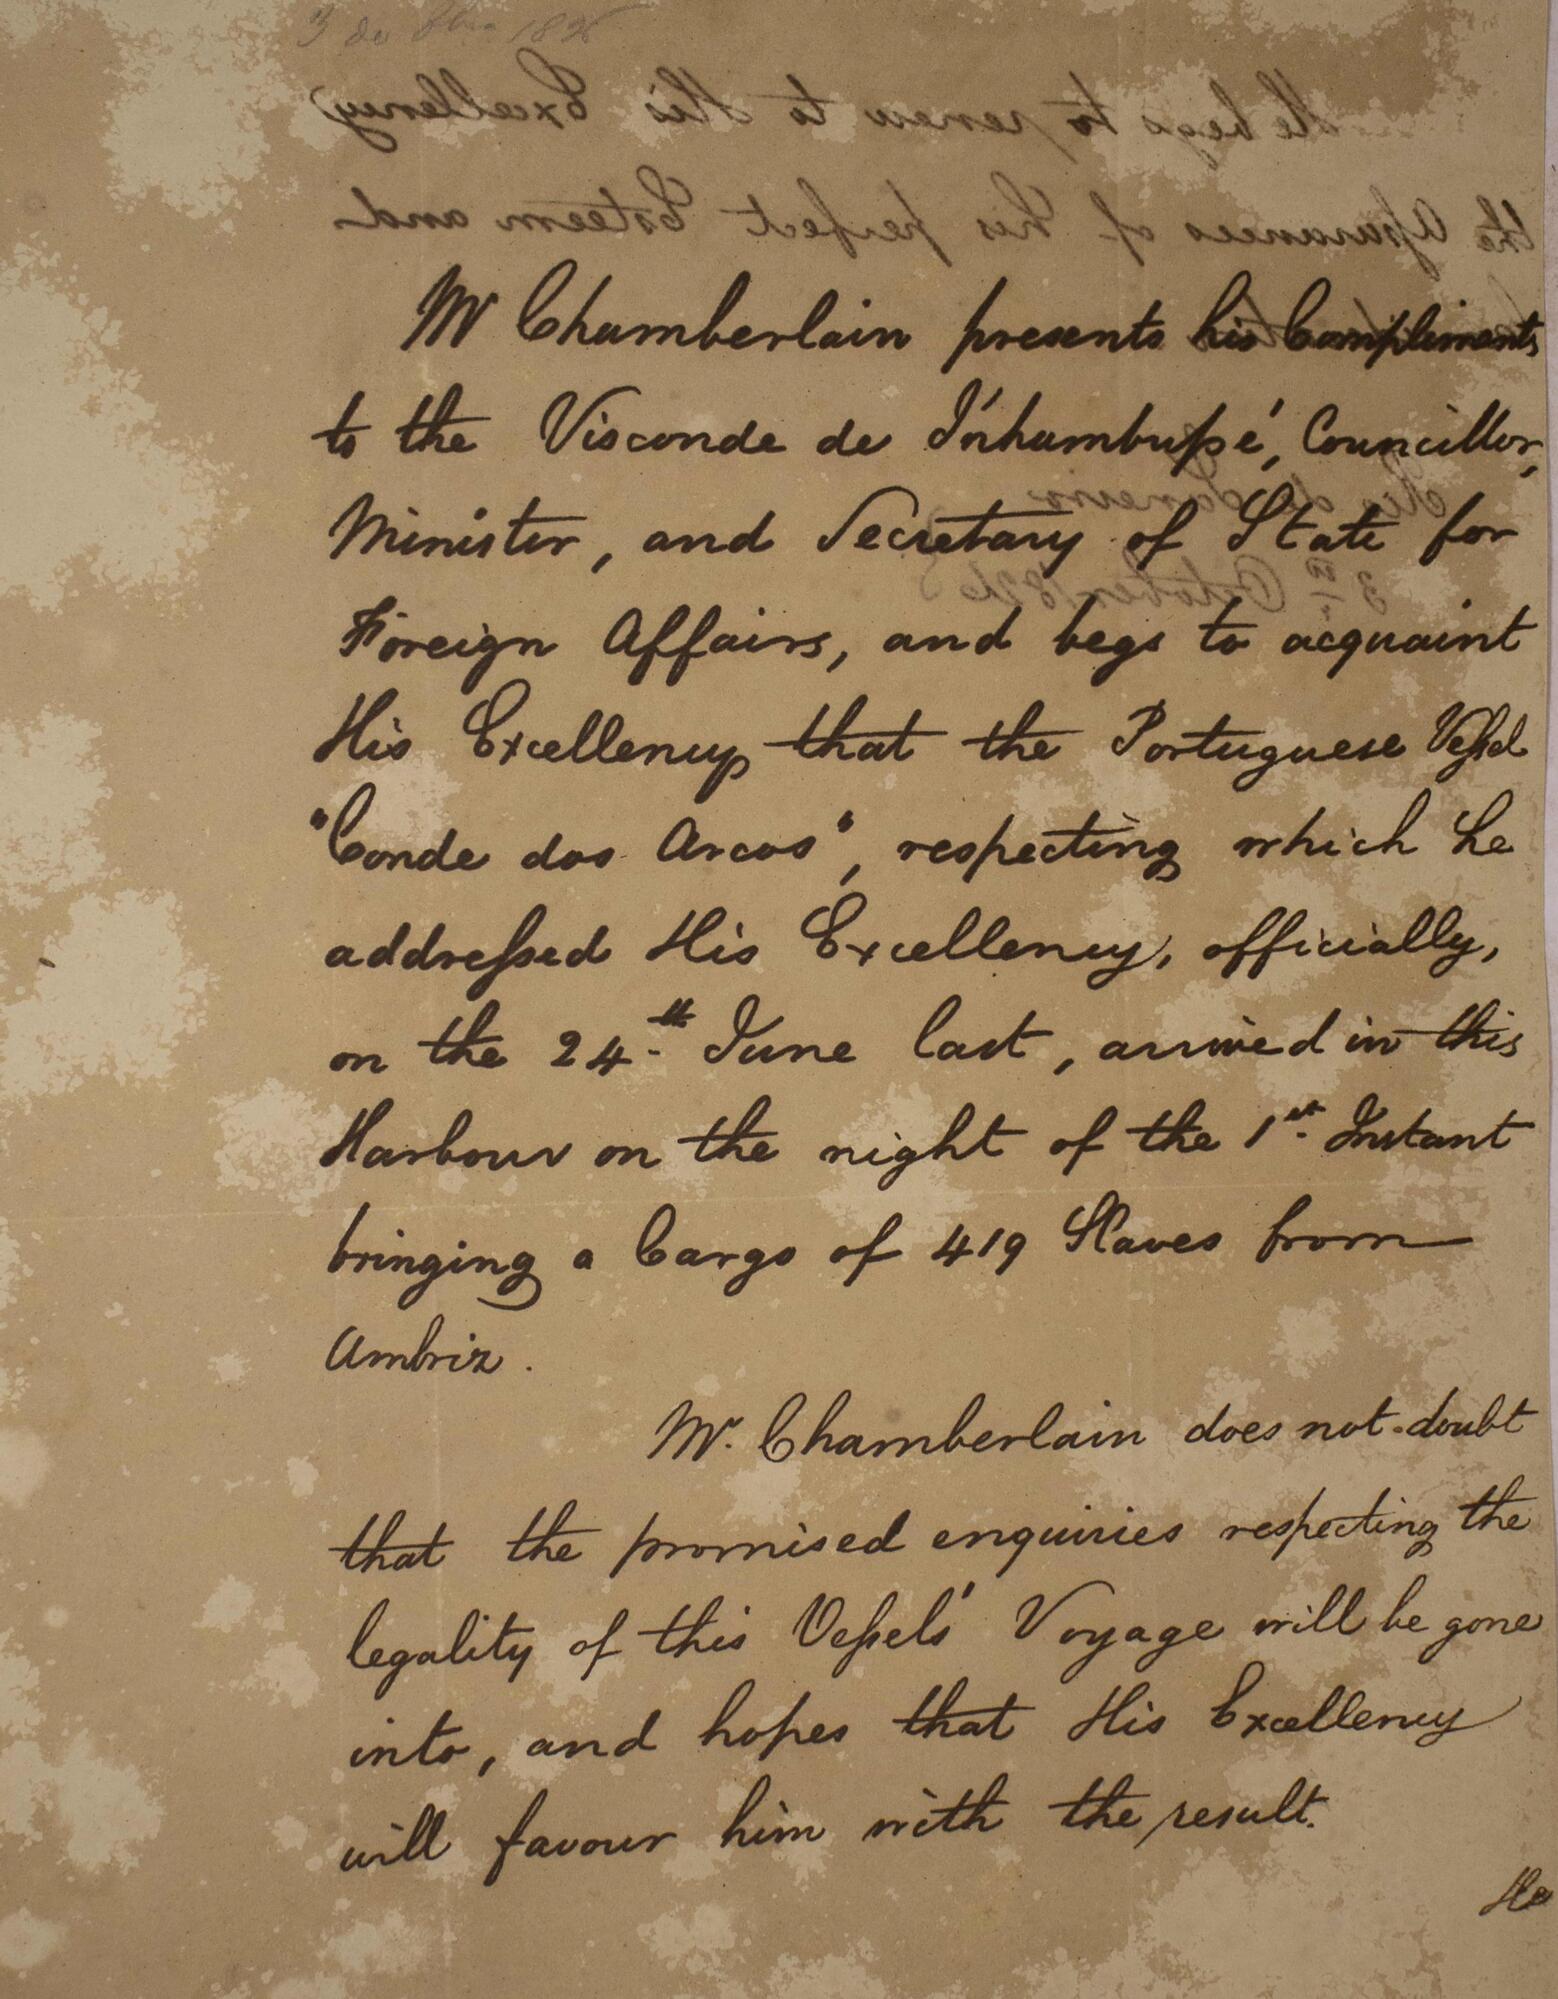 3 de 1826
He begs to renew to His Excellency
the Assurances of his perfect Esteem and
Mr Chamberlain presents his Compliments
to the Visconde de Inhambupé, Councillor,
Minister, and Secretary of State for
Rio de Janeiro
3rd October 1826
Foreign Affairs, and begs to acquaint
His Excellency that the Portuguese Vessel
"Conde dos Arcos", respecting which he
addressed His Excellency, officially,
on the 24th June last, arrived in this
Harbour on the night of the 1st Instant
bringing a Cargo of 419 Slaves from
Ambriz.
Mr. Chamberlain does not doubt
that the promised enquiries respecting the
legality of this Vessels' Voyage will be gone
into, and hopes that His Excellency
will favour him with the result.
He